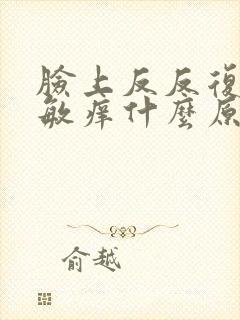 臉上反反復
敏痒什麼原
俞越